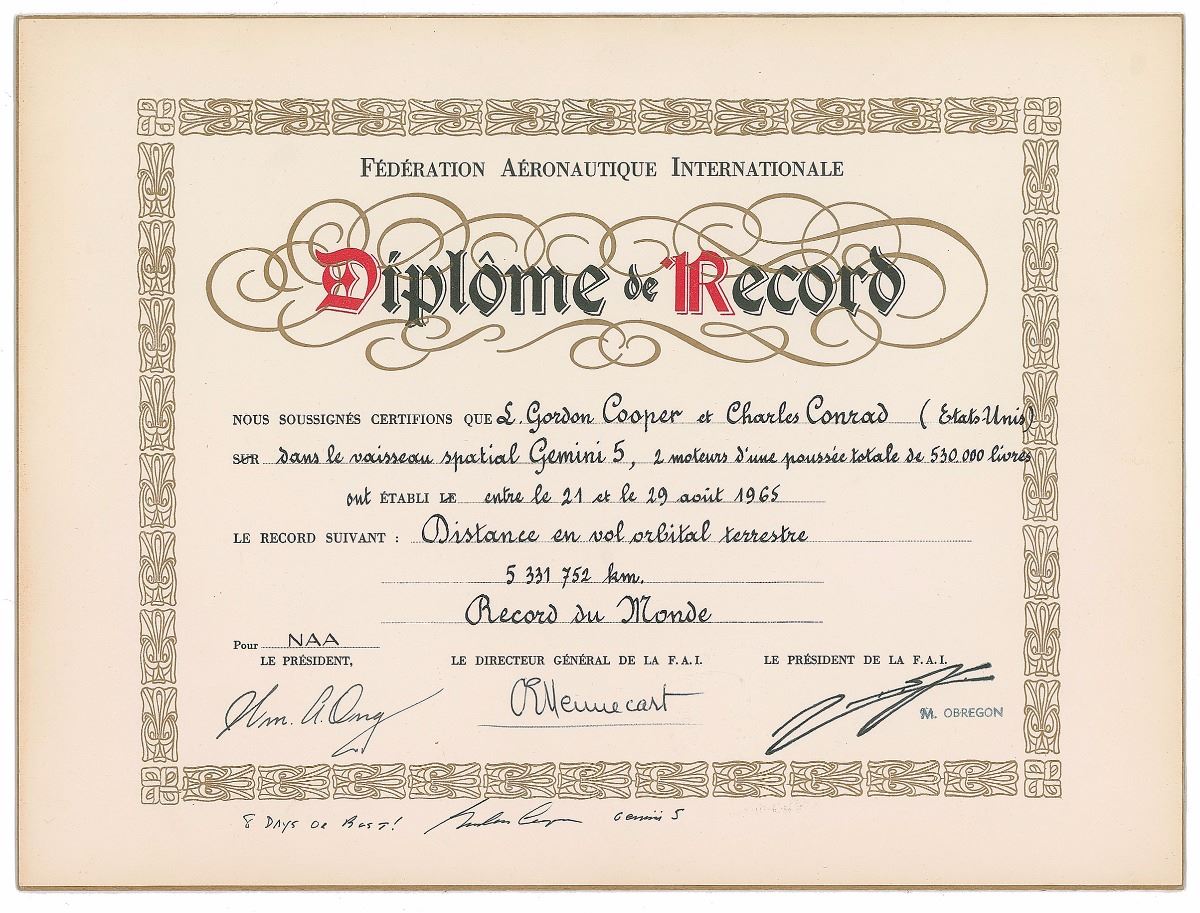 FÉDÉRATION AÉRONAUTIQUE INTERNATIONALE
Diplôme de Record
NOUS SOUSSIGNÉS CERTIFIONS QUE L. Gordon Cooper et Charles Conrad ( Etats-Unis)
SUR dans le vaisseau spatial Gemini 5, 2 moteurs d'une poussée totale de 530.000 livres
ont ÉTABLI LE entre le 21 et le 29 août 1965
LE RECORD SUIVANT : Distance en vol orbital terrestre
5 331 752 km.
Record du Monde
Pour NAA
LE PRÉSIDENT, LE DIRECTEUR GÉNÉRAL DE LA F.A.I. LE PRÉSIDENT DE LA F.A.I.
Wm. A. Ong
M. OBREGON
8 DAYS OR BUST! Gordon Cooper Gemini 5